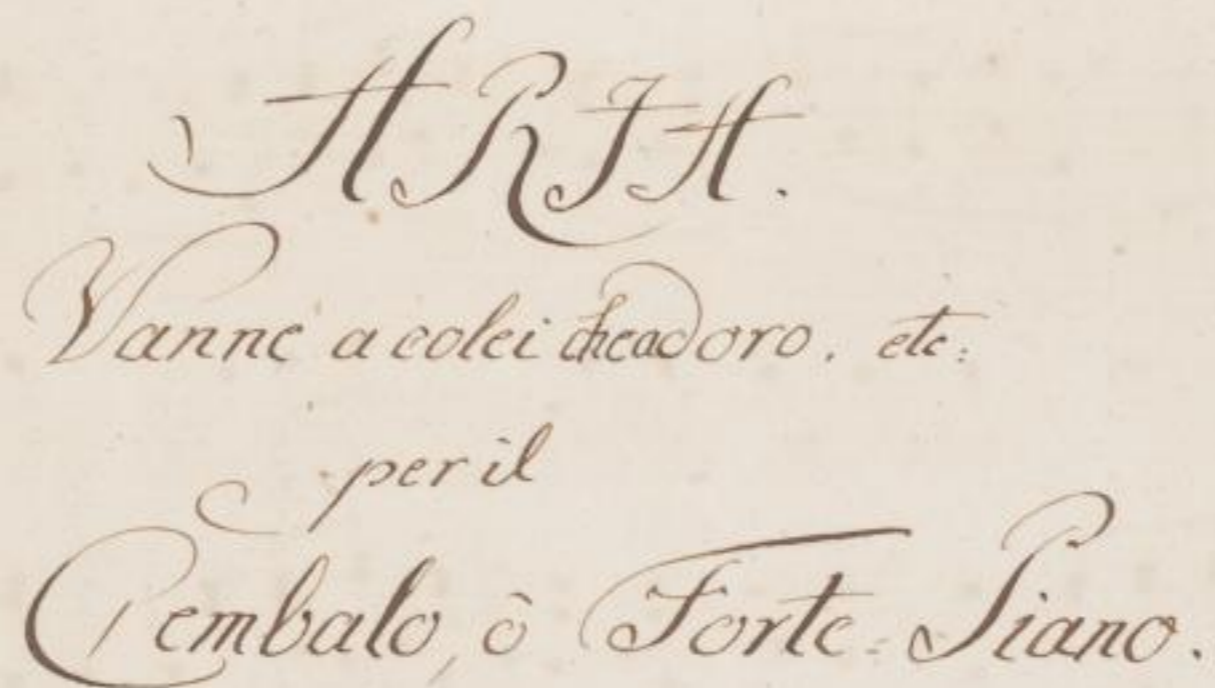 ARIA.
Vanne a colei che adoro. etc:
per il
Cembalo, ô Forte-Piano.